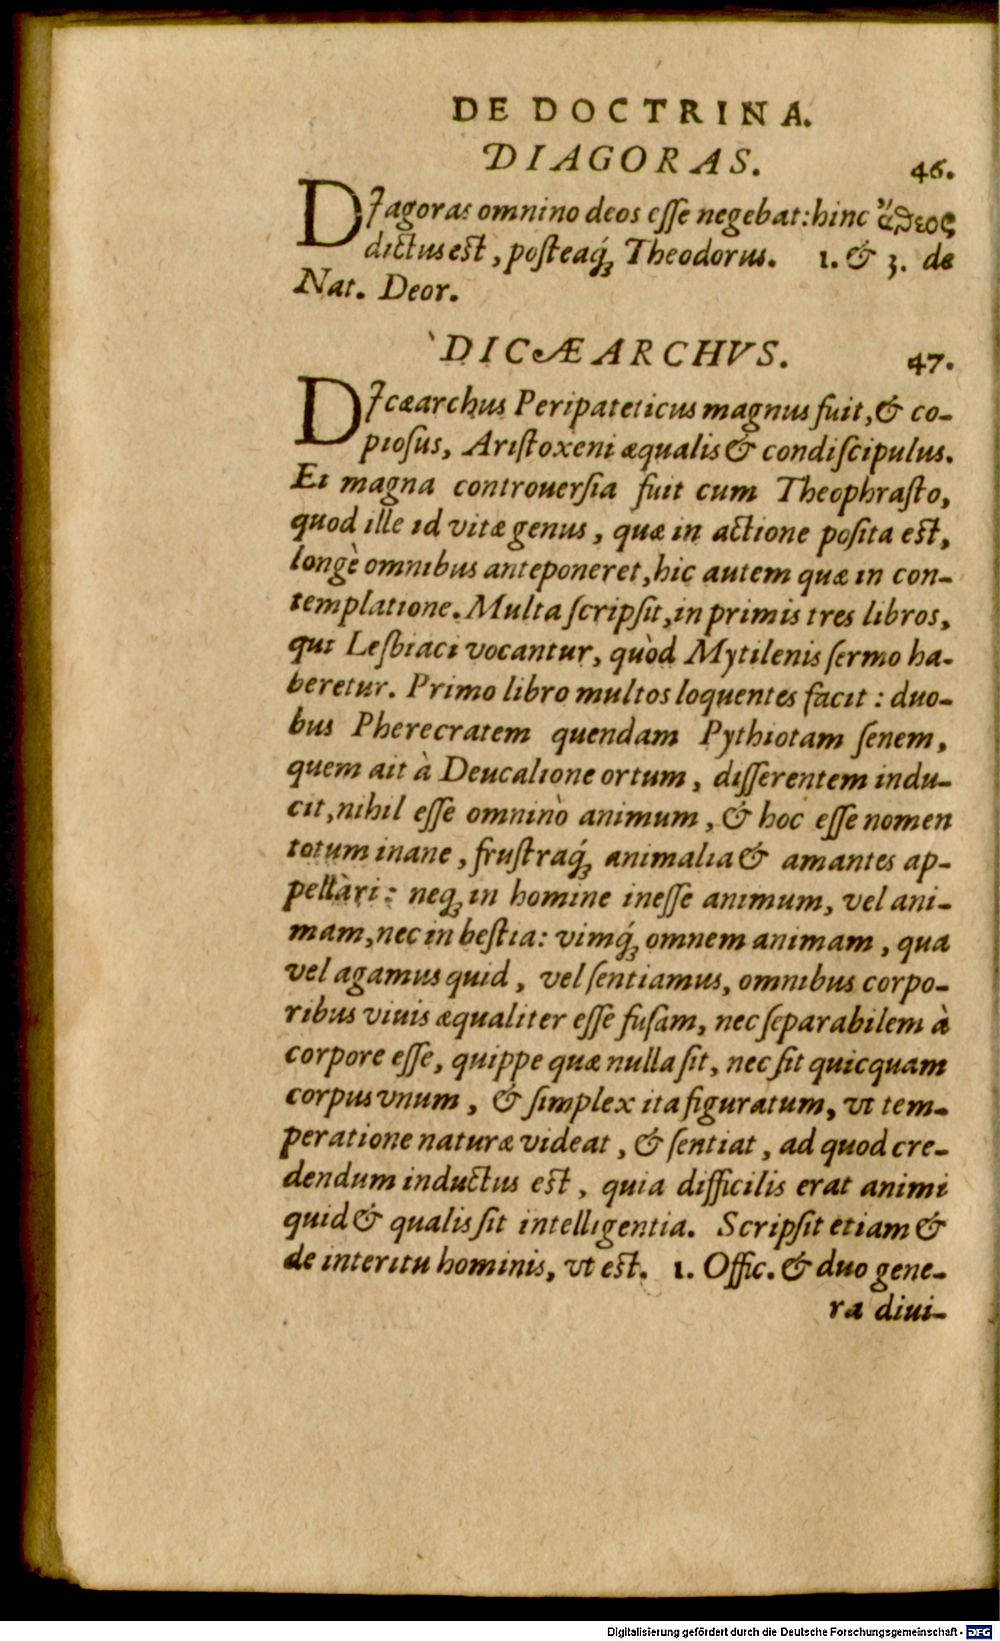 DE DOCTRINA.
DIAGORAS. 46.
DIagoras omnino deos eſſe negebat: hinc ἄθεος
dictus est, poſteaq́; Theodorus. 1. & 3. de
Nat. Deor.
DICÆARCHVS. 47.
DIcæarchus Peripateticus magnus fuit, & co-
pioſus, Ariſtoxeni æqualis & condiſcipulus.
Ei magna controuerſia fuit cum Theophraſto,
quod ille id vitæ genus, quæ in actione poſita est,
longè omnibus anteponeret, hic autem quæ in con-
templatione. Multa ſcripſit, in primis tres libros,
qui Leſbiaci vocantur, quòd Mytilenis ſermo ha-
beretur. Primo libro multos loquentes facit: duo-
bus Pherecratem quendam Pythiotam ſenem,
quem ait à Deucalione ortum, diſſerentem indu-
cit, nihil eſſe omninò animum, & hoc eſſe nomen
totum inane, fruſtraq́; animalia & amantes ap-
pellàri: neq; in homine ineſſe animum, vel ani-
mam, nec in beſtia: vimq́; omnem animam, qua
vel agamus quid, vel ſentiamus, omnibus corpo-
ribus viuis æqualiter eſſe fuſam, nec ſeparabilem à
corpore eſſe, quippe quæ nulla ſit, nec ſit quicquam
corpus vnum, & ſimplex ita figuratum, vt tem-
peratione naturæ videat, & ſentiat, ad quod cre-
dendum inductus est, quia difficilis erat animi
quid & qualis ſit intelligentia. Scripſit etiam &
de interitu hominis, vt est. 1. Offic. & duo gene-
ra diui-
Digitalisierung gefördert durch die Deutsche Forschungsgemeinschaft - DFG